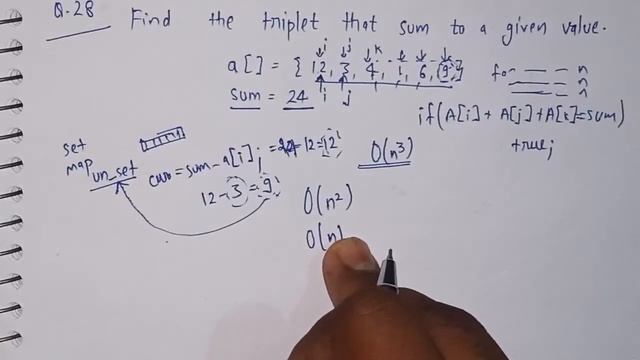 Q.28 Find the triplet that sum to a given value.
i j k
a[] = { 12, 3, 4, 1, 6, 9 }
for n
n
n
sum = 24 i j
if(A[i] + A[j] + A[k] = sum)
true;
set
map un_set
curr = sum - a[i]; = 24 - 12 = 12
O(n³)
12 - 3 = 9
O(n²)
O(n)